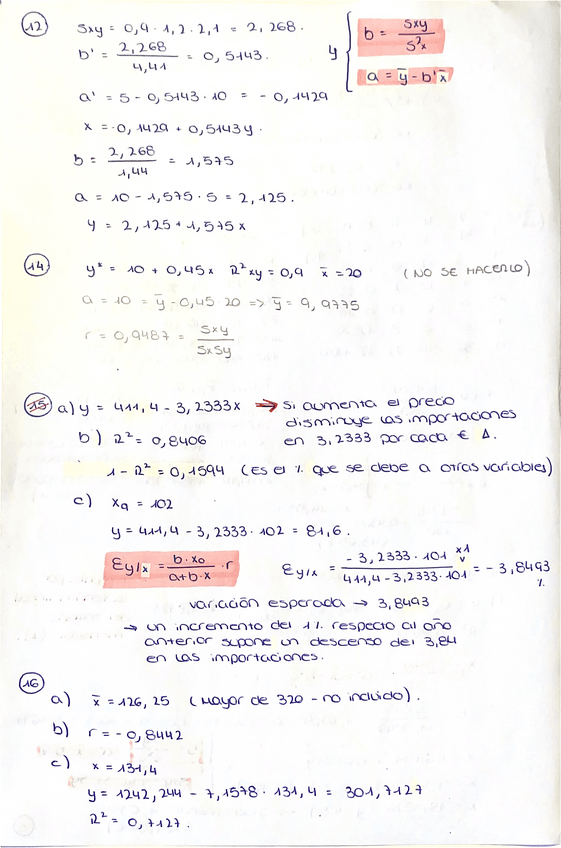 12 Sxy = 0,9 · 1,2 · 2,1 = 2,268.
b' = 2,268 / 4,41 = 0,5143.
y { b = Sxy / S²x
a = ȳ - b'x̄
a' = 5 - 0,5143 · 10 = - 0,1429
x = -0,1429 + 0,5143y.
b = 2,268 / 1,44 = 1,575
a = 10 - 1,575 · 5 = 2,125.
y = 2,125 + 1,575x
14 y* = 10 + 0,45x R²xy = 0,9 x̄ = 20 (NO SE HACERLO)
a = 10 = ȳ - 0,45 · 20 => ȳ = 9,9775
r = 0,9487 = Sxy / SxSy
15 a) y = 411,4 - 3,2333x → Si aumenta el precio
disminuye las importaciones
en 3,2333 por cada € Δ.
b) R² = 0,8406
1 - R² = 0,1594 (Es el % que se debe a otras variables)
c) x9 = 102
y = 411,4 - 3,2333 · 102 = 81,6.
Ey/x = b · x0 / a+b · x · r
Ey/x = - 3,2333 · 101 x1 / 411,4 - 3,2333 · 101 = - 3,8493 %.
variación esperada → 3,8493
→ un incremento del 1% respecto al año
anterior supone un descenso del 3,84
en las importaciones.
16
a) x̄ = 126,25 (Mayor de 320 - no incluido).
b) r = - 0,8442
c) x = 131,4
y = 1242,244 - 7,1578 · 131,4 = 301,7127
R² = 0,7127.